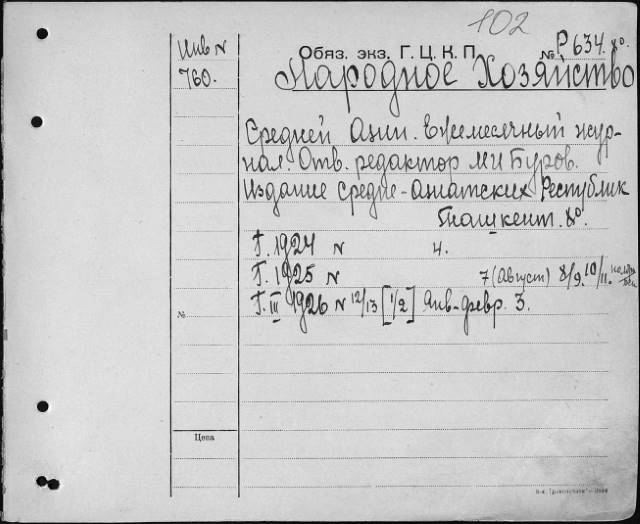 102
Инв N
760.
Обяз. экз. Г. Ц. К. П.
№ Р 634. 8º.
Народное Хозяйство
Средней Азии. Ежемесячный жур-
нал. Отв. редактор М И Буров.
Издание средне-азиатских Республик
Ташкент. 8º.
Г. 1924 N 4.
Г. 1925 N 7 (Август) 8/9. 10/11.
Г. III 1926 N 12/13 [1/2] Янв-февр. 3.
№
Цена